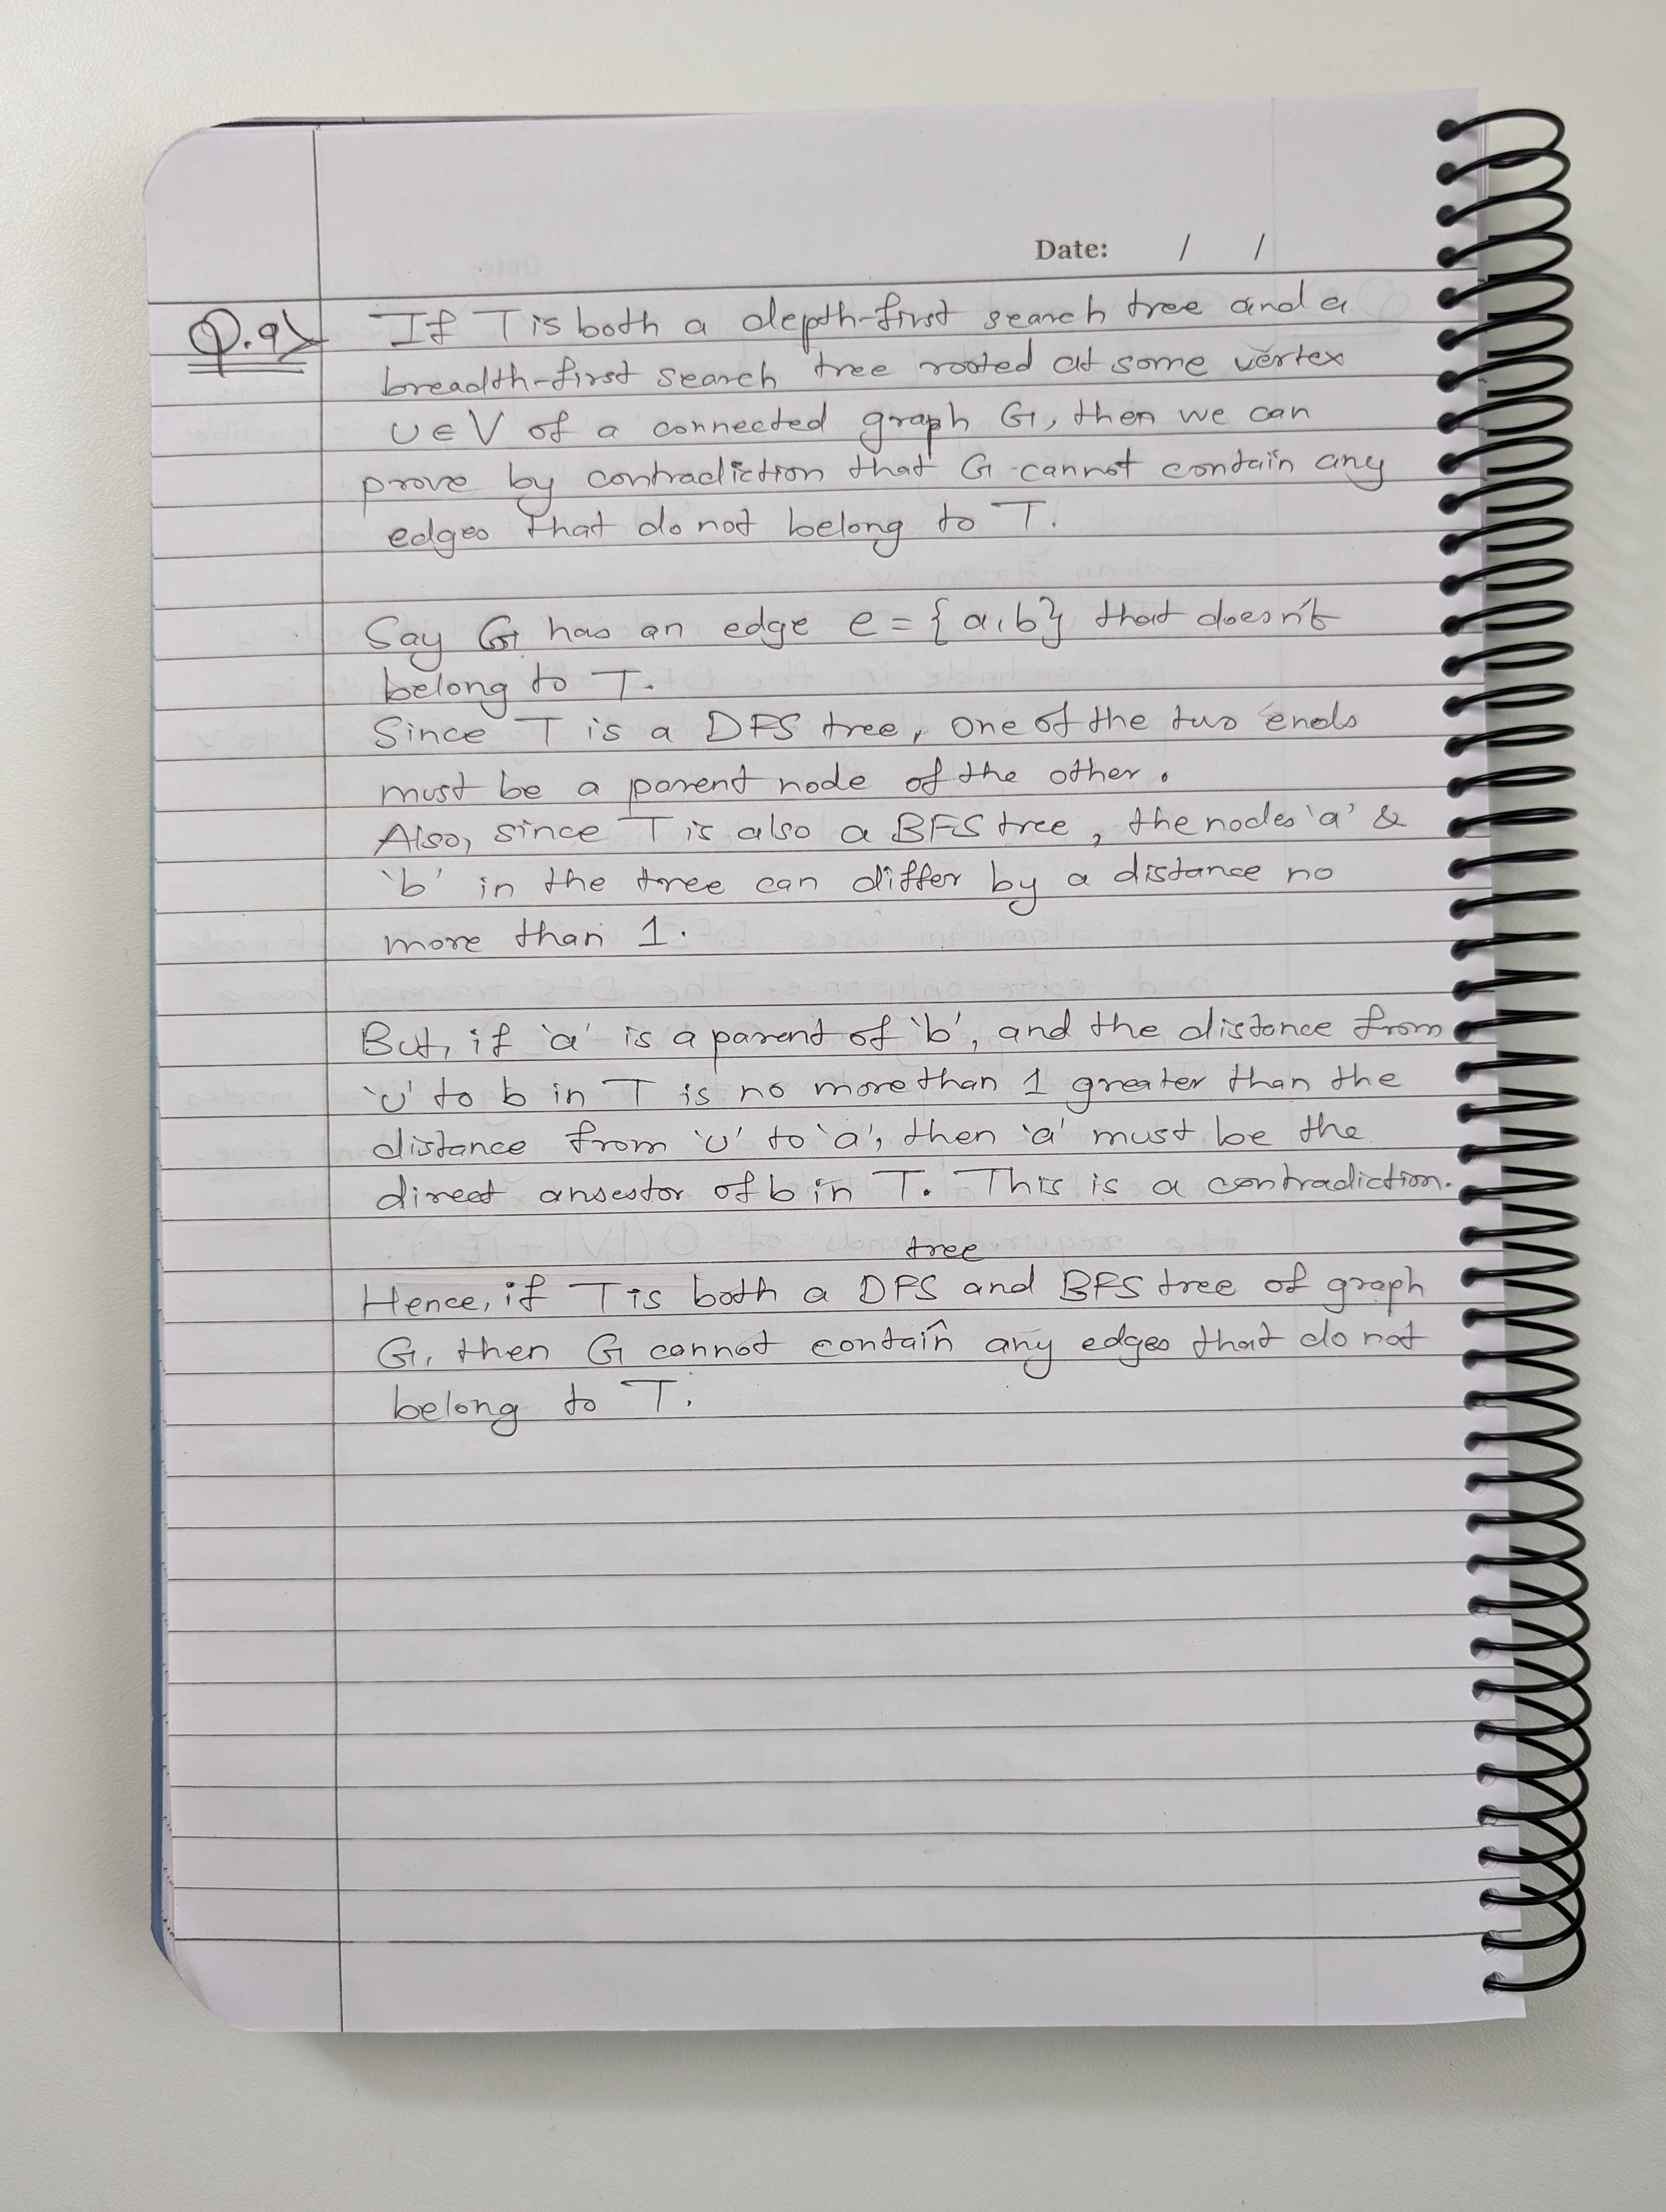 Date: / /
Q.9> If T is both a depth-first search tree and a
breadth-first search tree rooted at some vertex
u∈V of a connected graph G, then we can
prove by contradiction that G cannot contain any
edges that do not belong to T.
Say G has an edge e = {a,b} that doesn't
belong to T.
Since T is a DFS tree, one of the two ends
must be a parent node of the other.
Also, since T is also a BFS tree, the nodes 'a' &
'b' in the tree can differ by a distance no
more than 1.
But, if 'a' is a parent of 'b', and the distance from
'u' to b in T is no more than 1 greater than the
distance from 'u' to 'a', then 'a' must be the
direct ansestor of b in T. This is a contradiction.
tree
Hence, if T is both a DFS and BFS tree of graph
G, then G cannot contain any edges that do not
belong to T.